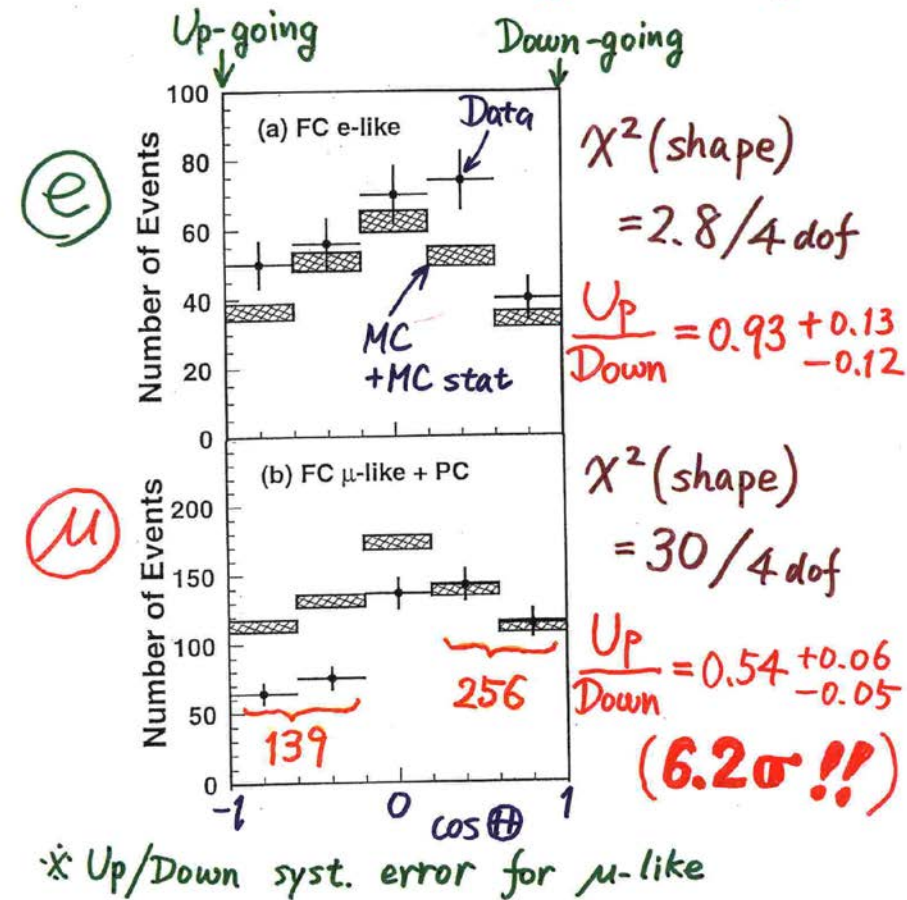 Up-going Down-going
100
80
60
40
20
0
Number of Events
(a) FC e-like
Data
MC
+MC stat
e
χ² (shape)
= 2.8/4 dof
Up/Down = 0.93 +0.13 -0.12
200
150
100
50
0
Number of Events
(b) FC μ-like + PC
139
256
-1 0 1
cos Θ
μ
χ² (shape)
= 30/4 dof
Up/Down = 0.54 +0.06 -0.05
(6.2σ!!)
※ Up/Down syst. error for μ-like